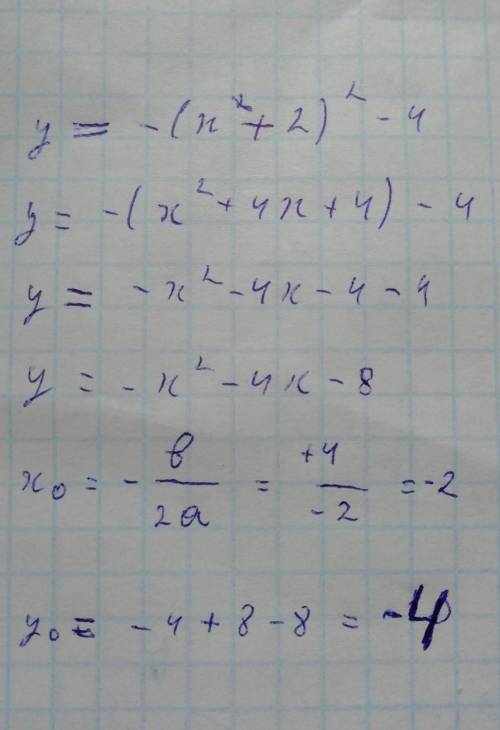 y = -(x² + 2)² - 4
y = -(x² + 4x + 4) - 4
y = -x² - 4x - 4 - 4
y = -x² - 4x - 8
x₀ = - в/2a = +4/-2 = -2
y₀ = -4 + 8 - 8 = -4